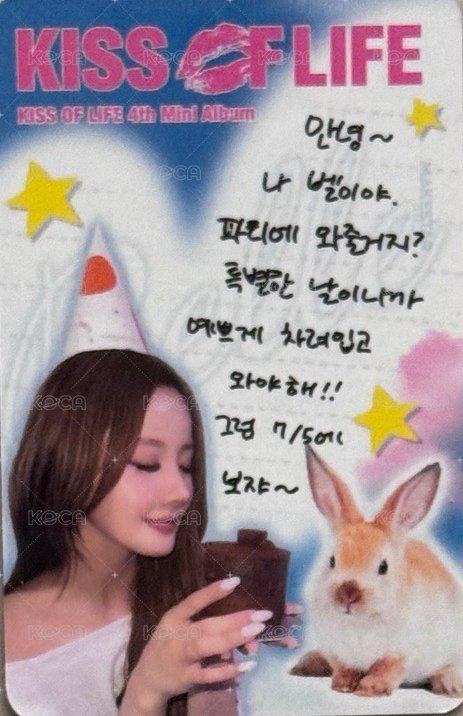 KISS OF LIFE
KISS OF LIFE 4th Mini Album
안녕~
나 벨이야.
파티에 와줄거지?
특별한 날이니까
예쁘게 차려입고
와야해!!
그럼 7/5에
보쟈~
KOCA